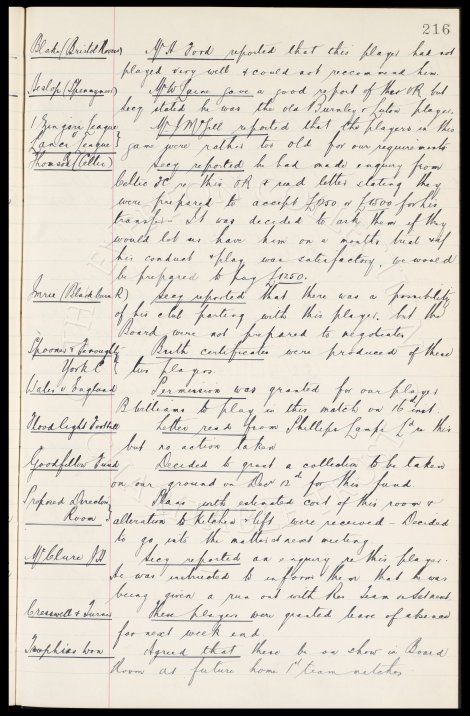 216
Blake (Bristol Rovers) Mr A Ford reported that this player had not
played very well & could not recommend him.
Heslop (Spennymoor) Mr W Laine gave a good report of this OR but
Secy stated he was the old Burnley & Luton player.
1 Zingari League } Mr J McGill reported that the players in this
Lancs League } game were rather too old for our requirements
Thomson (Celtic) Secy reported he had made enquiry from
Celtic FC re this OR & read letter stating they
were prepared to accept £ or £1500 for his
transfer. It was decided to ask them if they
would let us have him on a months trial & if
his conduct & play was satisfactory, we would
be prepared to pay £1250.
Imree (Blackburn R) Secy reported that there was a possibility
of his club parting with this player, but the
Board were not prepared to negotiate.
Spooner & Fenoughty } Birth certificates were produced of these
York C } two players
Wales v England Permission was granted for our player
B Williams to play in this match on 16th inst
Flood light Football Letter read from Phillips Lamps Ltd re this
but no action taken
Goodfellow Fund Decided to grant a collection to be taken
on our ground on Decr 12th for this fund
Proposed Directors } Plans with estimated cost of this room &
Room } alteration to kitchen & lift were received - Decided
to go into the matter at next meeting
McClure J H Secy reported an enquiry re this player.
He was instructed to inform them that he was
being given a run out with Res team on Saturday.
Cresswell & Turner These players were granted leave of absence
for next week end
Trophies won Agreed that these be on show in Board
Room at future home 1st team matches